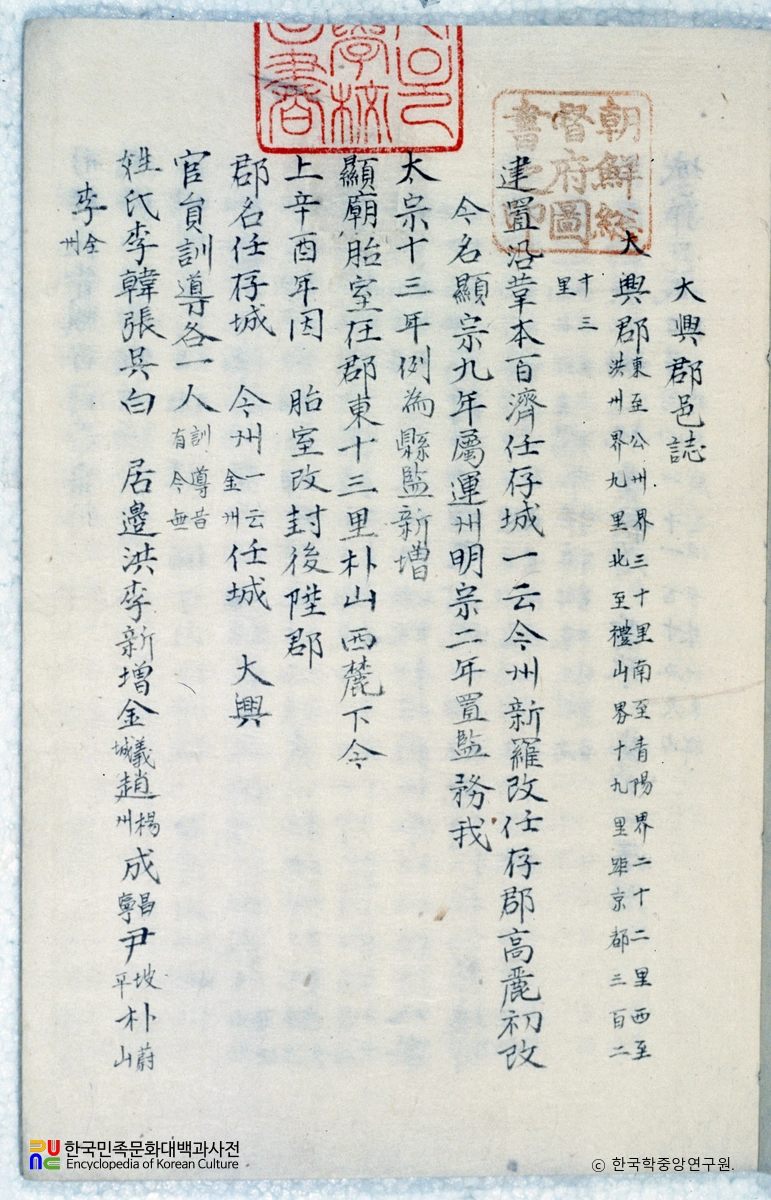 大興郡邑誌
大興郡東至公州界三十里南至青陽界二十二里西至
洪州界九里北至禮山界十九里距京都三百二
十三
里
建置沿革本百濟任存城一云今州新羅改任存郡高麗初改
今名顯宗九年屬運州明宗二年置監務我
太宗十三年例為縣監新增
顯廟胎室在郡東十三里朴山西麓下今
上辛酉年因 胎室改封後陞郡
郡名任存城 今州一云金州任城 大興
官員訓導各一人訓導昔有今無
姓氏李韓張吳白 居邊洪李新增金義城趙楊州成昌寧尹坡平朴蔚山
李全州
朝鮮總
督府圖
書之印
한국민족문화대백과사전
Encyclopedia of Korean Culture
© 한국학중앙연구원.